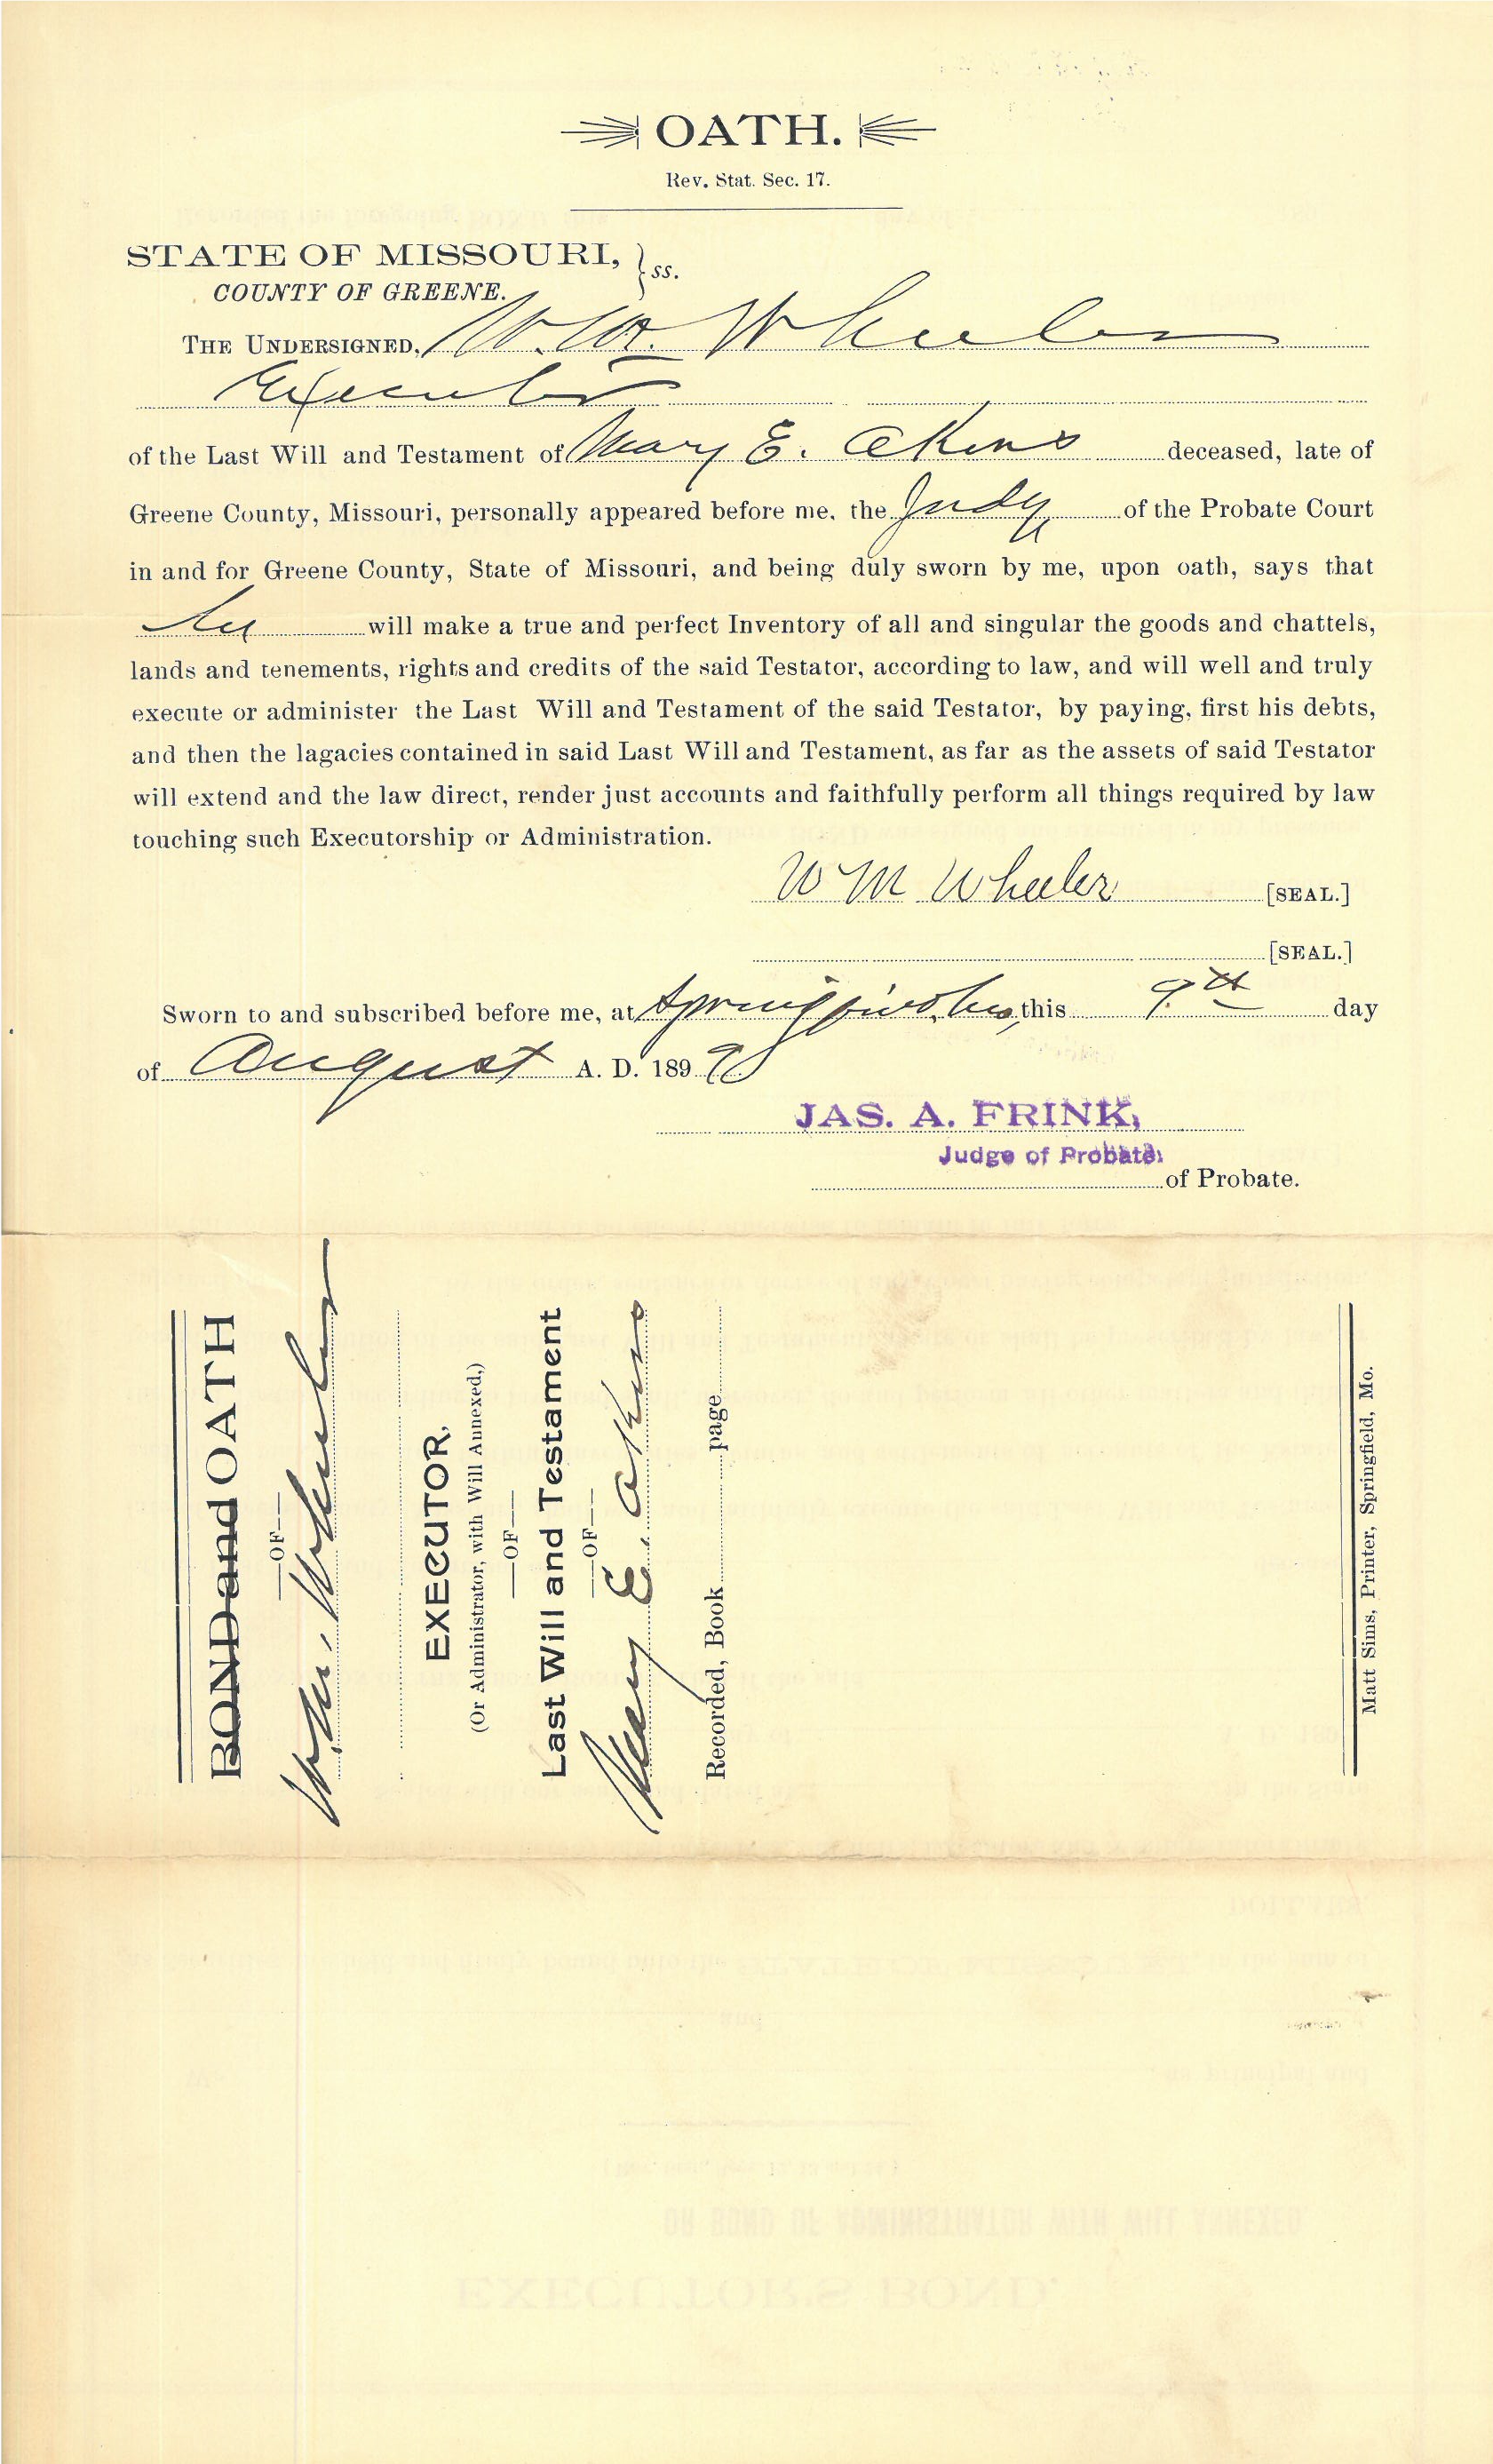 OATH.
Rev. Stat. Sec. 17.
STATE OF MISSOURI, } ss.
COUNTY OF GREENE.
THE UNDERSIGNED, W. M. Wheeler
Executor
of the Last Will and Testament of Mary E. Akins deceased, late of
Greene County, Missouri, personally appeared before me, the Judge of the Probate Court
in and for Greene County, State of Missouri, and being duly sworn by me, upon oath, says that
he will make a true and perfect Inventory of all and singular the goods and chattels,
lands and tenements, rights and credits of the said Testator, according to law, and will well and truly
execute or administer the Last Will and Testament of the said Testator, by paying, first his debts,
and then the lagacies contained in said Last Will and Testament, as far as the assets of said Testator
will extend and the law direct, render just accounts and faithfully perform all things required by law
touching such Executorship or Administration.
W M Wheeler [SEAL.]
[SEAL.]
Sworn to and subscribed before me, at this 9th day
of August A. D. 189
JAS. A. FRINK,
Judge of Probate.
of Probate.
BOND and OATH
—OF—
W. M. Wheeler
EXECUTOR,
(Or Administrator, with Will Annexed,)
—OF—
Last Will and Testament
—OF—
Mary E. Akins
Recorded, Book page
Matt Sims, Printer, Springfield, Mo.